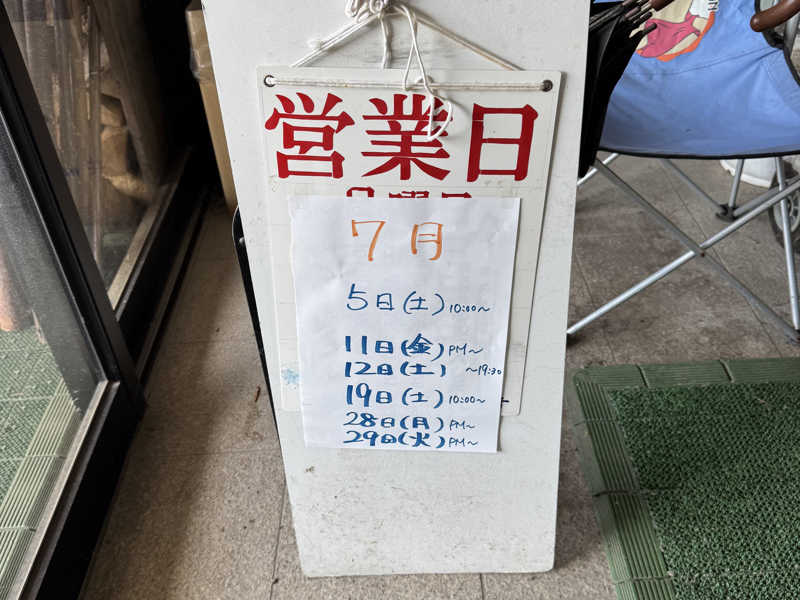 営業日
7月
5日(土) 10:00~
11日(金) PM~
12日(土) ~19:30
19日(土) 10:00~
28日(月) PM~
29日(火) PM~